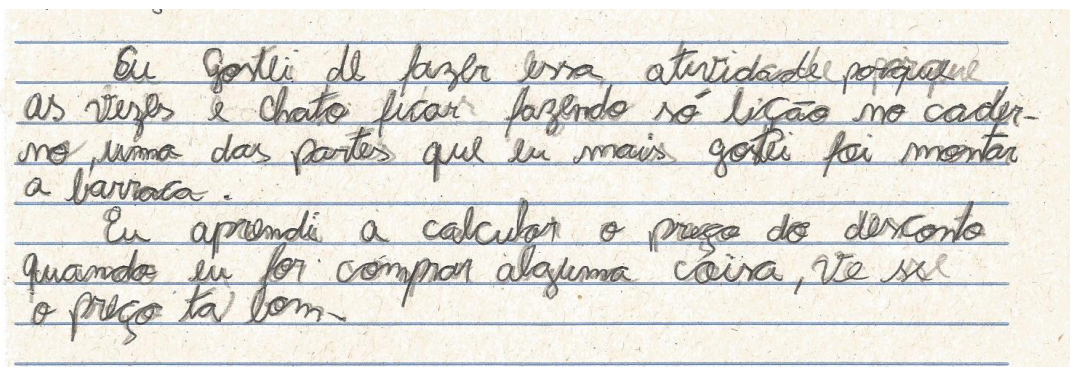 Eu gostei de fazer essa atividade porque
as vezes e chato ficar fazendo só lição no cader-
no, uma das partes que eu mais gostei foi montar
a barraca.
Eu aprendi a calcular o preço do desconto
quando eu for comprar alguma coisa, ve se
o preço ta bom.